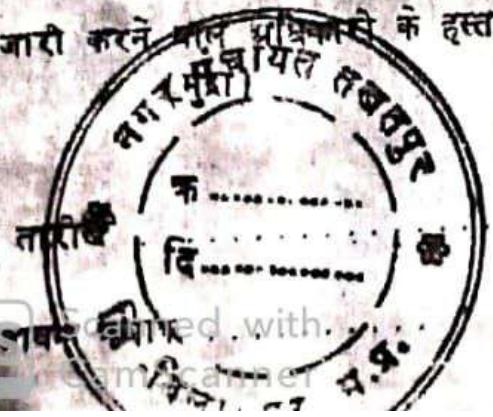 जारी करने वाले अधिकारी के हस्त
नगर पंचायत तखतपुर
(मुद्रा)
क्र ..................
तारीख
दि ..................
Scanned with
CamScanner
म.प्र.